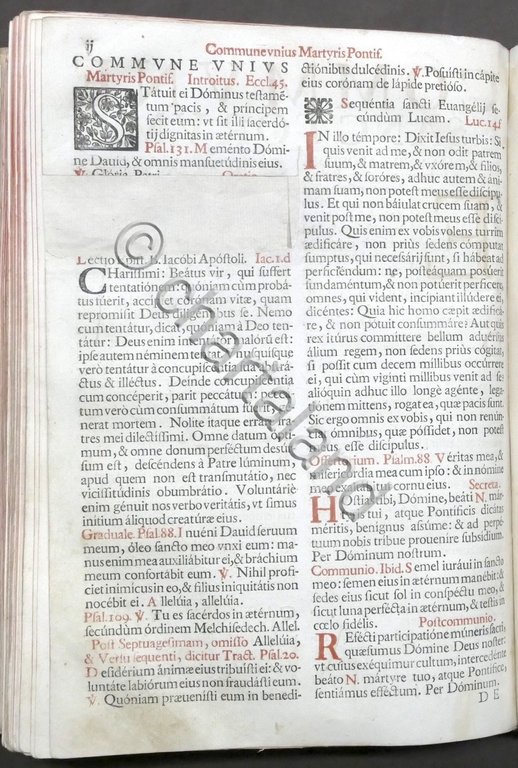 ij
Commune vnius Martyris Pontif.
COMMVNE VNIVS
Martyris Pontif. Introitus. Eccl.45.
STátuit ei Dóminus testamé-
tum pacis, & principem
fecit eum: vt sit illi sacerdó-
tij dignitas in ætérnum.
Psal.131. Memênto Dómi-
ne Dauid, & omnis mansuetúdinis eius.
℣. Glória Patri.
Lectio Epist. B. Iacóbi Apóstoli. Iac.1.d
CHaríssimi: Beátus vir, qui suffert
tentatiónem: quóniam cùm probá-
tus fúerit, accípiet corónam vitæ, quam
repromísit Deus diligéntibus se. Nemo
cum tentátur, dicat, quóniam à Deo ten-
tátur: Deus enim intentátor malorũ est:
ipse autem néminem tentat. Vnusquisque
verò tentátur à concupiscéntia sua abstrá-
ctus & illéctus. Deinde concupiscéntia
cum concéperit, parit peccátum: peccá-
tum verò cùm consummátum fúerit, ge-
nerat mortem. Nolite itaque erráre fra-
tres mei dilectíssimi. Omne datum ópti-
mum, & omne donum perféctum desúr-
sum est, descéndens à Patre lúminum,
apud quem non est transmutátio, nec
vicissitúdinis obumbrátio. Voluntáriè
enim génuit nos verbo veritátis, vt simus
inítium áliquod creatúræ eius.
Graduale. Psal.88. Inuéni Dauid seruum
meum, óleo sancto meo vnxi eum: ma-
nus enim mea auxiliábitur ei, & bráchium
meum confortábit eum. ℣. Nihil profi-
ciet inimícus in eo, & fílius iniquitátis non
nocébit ei. Allelúia, allelúia.
Psal.109. ℣. Tu es sacérdos in ætérnum,
secúndùm órdinem Melchísedech. Allel.
Post Septuagesimam, omisso Allelúia,
& Versu sequenti, dicitur Tract. Psal.20.
Desidérium ánimæ eius tribuísti ei: & vo-
luntáte labiórum eius non fraudásti eum.
℣. Quóniam præuenísti eum in benedi-
ctiónibus dulcédinis. ℣. Posuísti in cápite
eius corónam de lápide pretióso.
Sequéntia sancti Euangélij se-
cúndùm Lucam. Luc.14.f
IN illo témpore: Dixit Iesus turbis: Si
quis venit ad me, & non odit patrem
suum, & matrem, & vxórem, & fílios,
& fratres, & soróres, adhuc autem & áni-
mam suam, non potest meus esse discípu-
lus. Et qui non báiulat crucem suam, &
venit post me, non potest meus esse discí-
pulus. Quis enim ex vobis volens turrim
ædificáre, non priùs sedens cómputat
sumptus, qui necessárij sunt, si hábeat ad
perficiéndum: ne, posteáquam posúerit
fundaméntum, & non potúerit perfícere,
omnes, qui vident, incípiant illúdere ei,
dicéntes: Quia hic homo cœpit ædificá-
re, & non pótuit consummáre? Aut quis
rex itúrus commíttere bellum aduérsus
álium regem, non sedens priùs cógitat,
si possit cum decem míllibus occúrrere
ei, qui cùm vigínti míllibus venit ad se?
alióquin adhuc illo longè agénte, lega-
tiónem mittens, rogat ea, quæ pacis sunt.
Sic ergo omnis ex vobis, qui non renún-
tiat ómnibus, quæ póssidet, non potest
meus esse discípulus.
Offertorium. Psalm.88. Véritas mea, &
misericórdia mea cum ipso: & in nómine
meo exaltábitur cornu eius. Secreta.
HOstias tibi, Dómine, beáti N. már-
tyris tui, atque Pontíficis dicátas
méritis, benígnus assúme: & ad perpé-
tuum nobis tríbue proueníre subsídium.
Per Dóminum nostrum.
Communio. Ibid. Semel iuráui in sancto
meo: semen eius in ætérnum manébit: &
sedes eius sicut sol in conspéctu meo, &
sicut luna perfécta in ætérnum, & testis in
cœlo fidélis. Postcommunio.
REfécti participatióne múneris sacri,
quæsumus Dómine Deus noster:
vt cuius exéquimur cultum, intercedénte
beáto N. mártyre tuo, atque Pontífice,
sentiámus efféctum. Per Dóminum.
DE
© chartaland